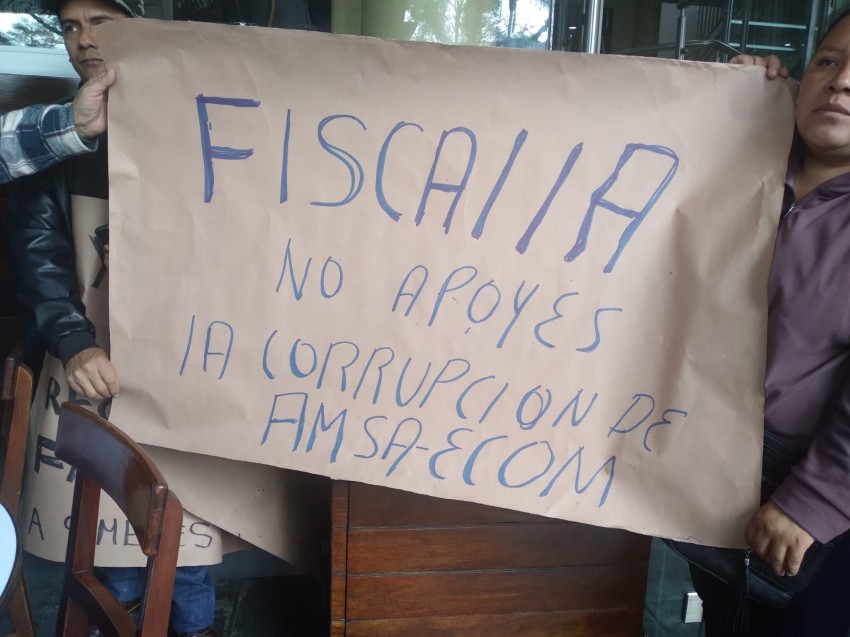 FISCAlIA
NO APOYES
lA CORRUPCION DE
AMSA-ECOM